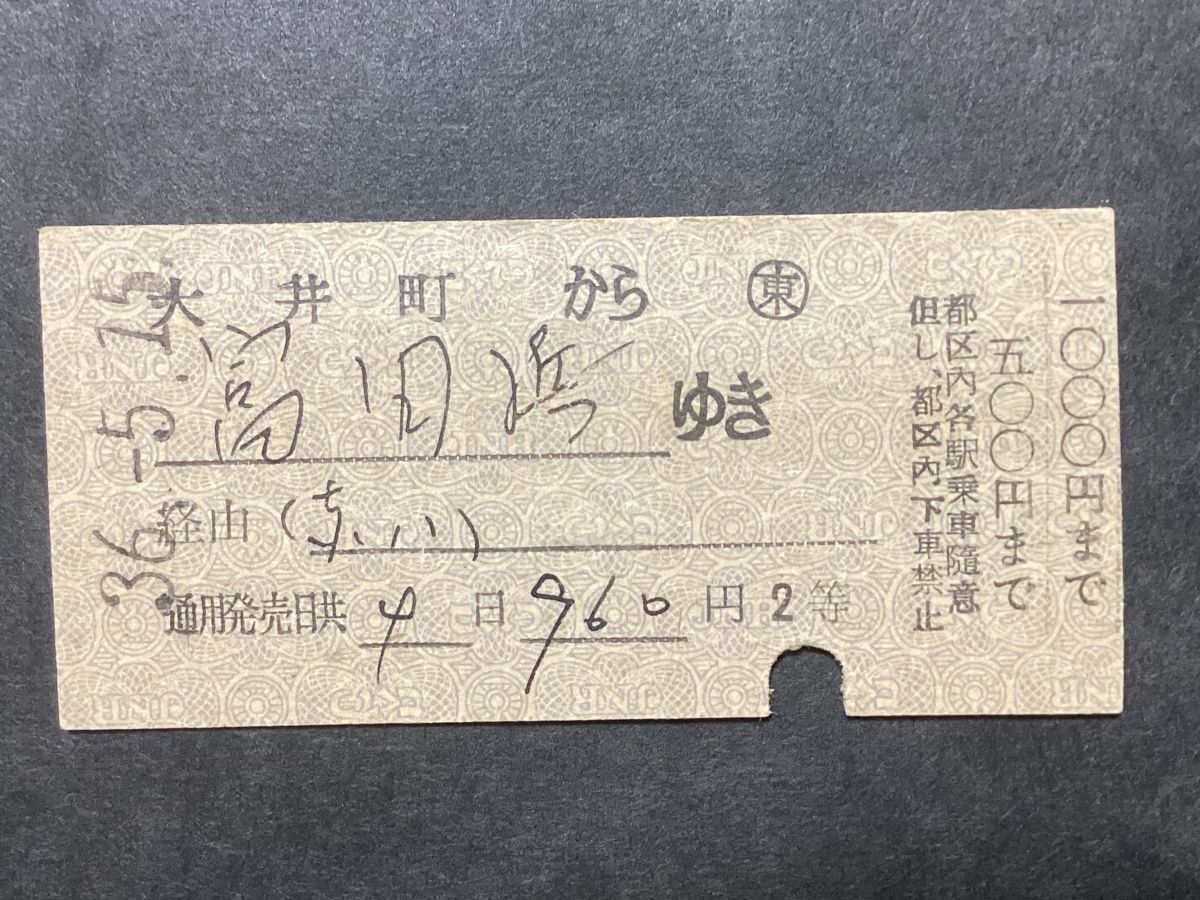 36.-5.15.
大井町から ㊞東
富田浜 ゆき
経由
通用発売日共 4 日 960 円 2等
都区内各駅乗車随意
但し、都区内下車禁止
五〇〇円まで
一〇〇〇円まで